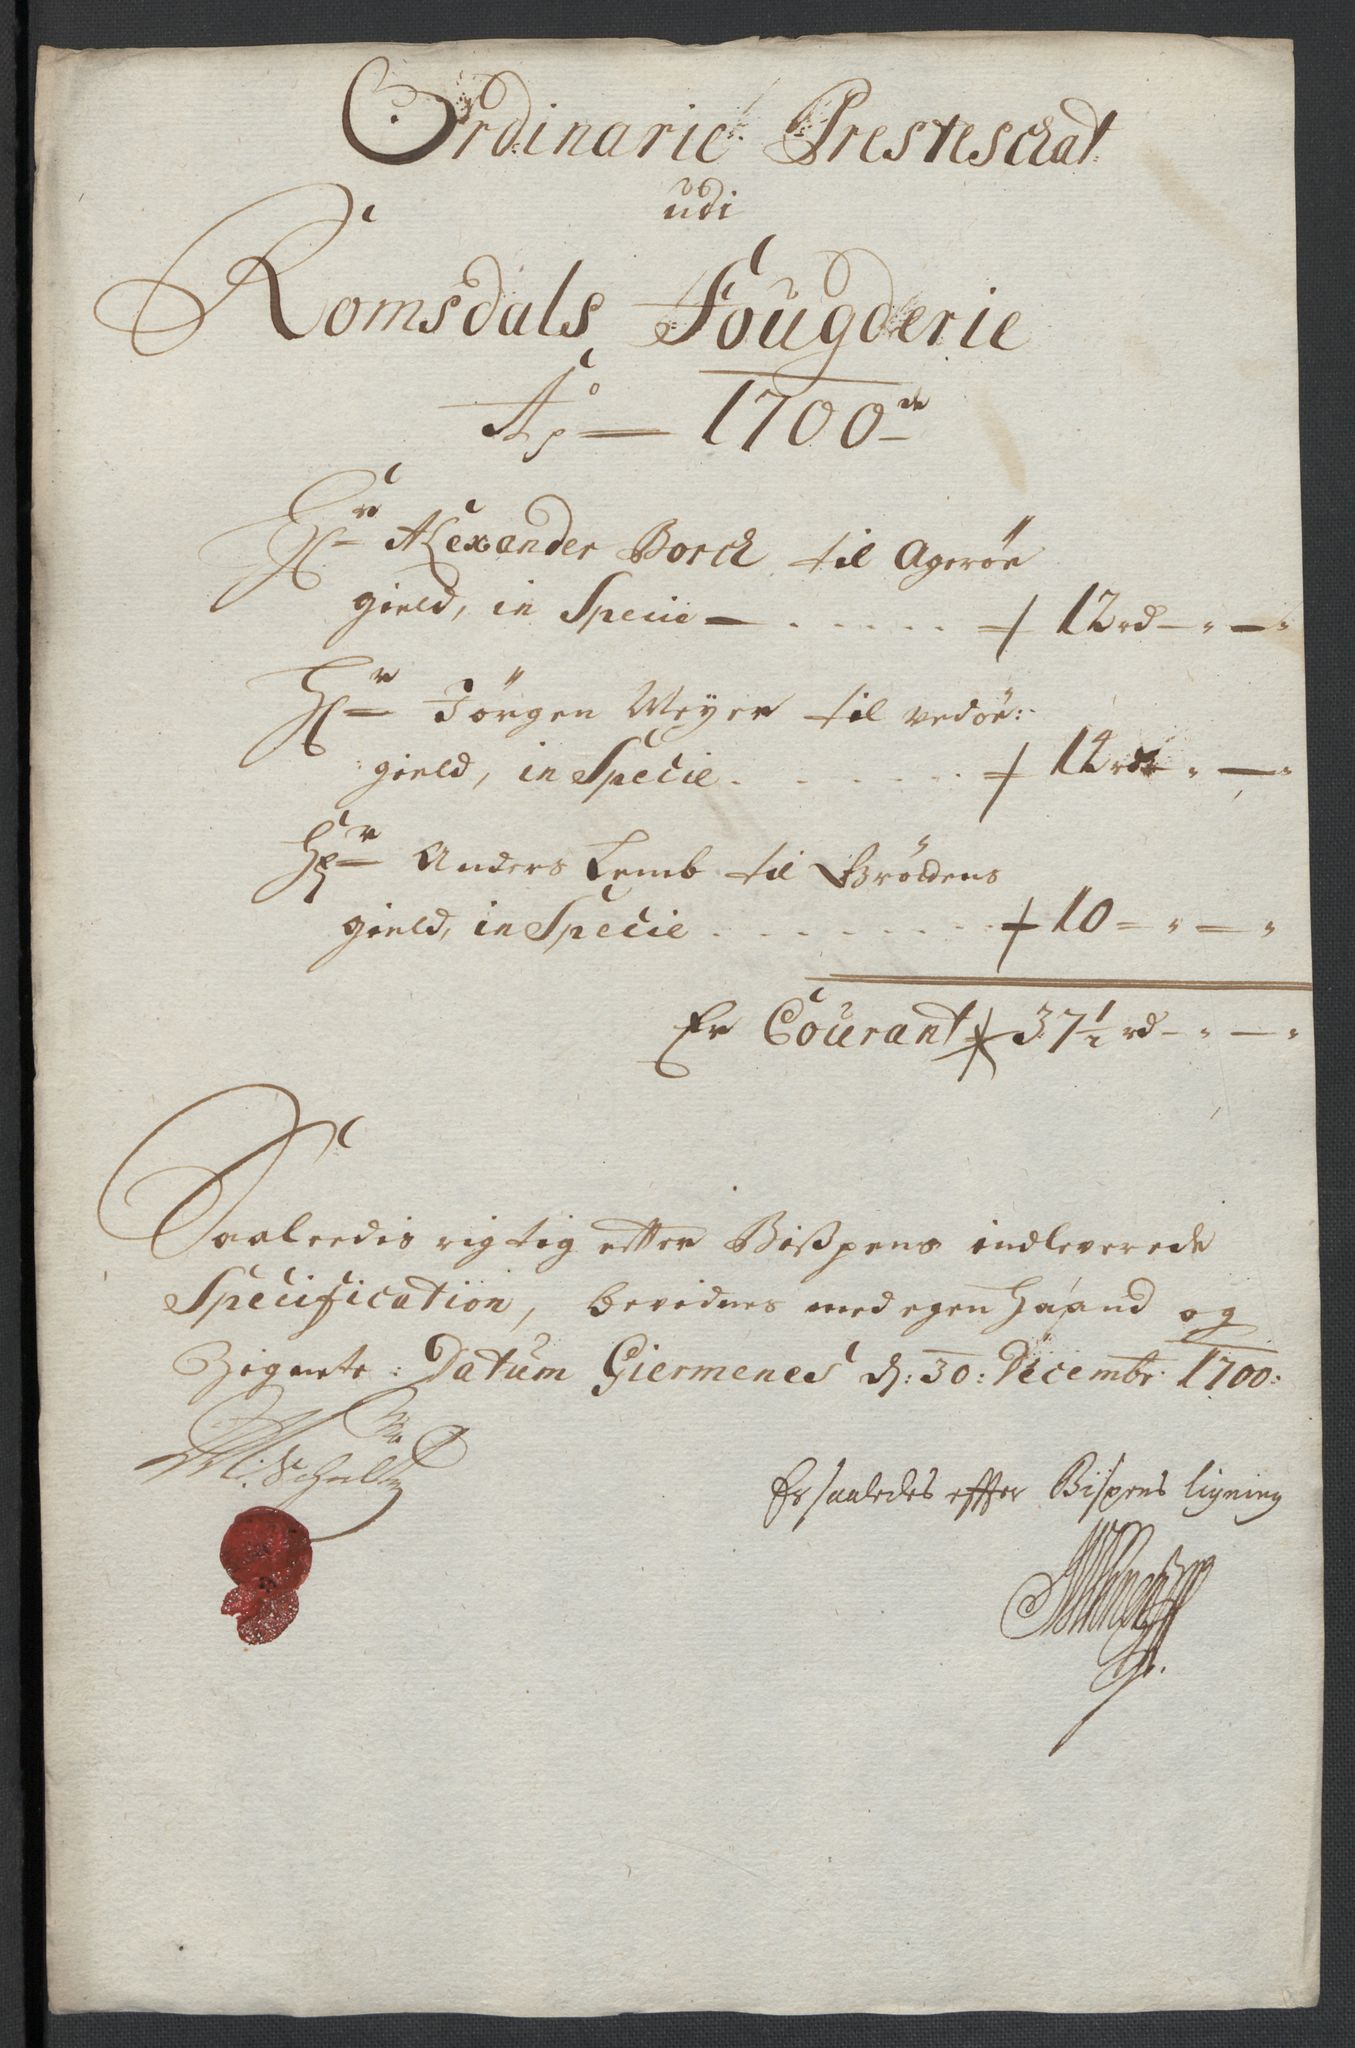 Ordinarie Presteschat
udi
Romsdals Fougderie
Ao 1700de
Hr Alexander Borch til Agerøe
gield, in Specie — . . . . . 12 rd — " — "
Hr Jörgen Meyer til vedöe:
gield, in Specie . . . . . . 12 rd " — "
Hr Anders Lemb til Grödens
gield, in Specie . . . . . . . . 10 — " — "
Er Courant 37 1/2 rd — " — "
Saaleedis rigtig efter Bißpens indleverede
Specification, bevidnes med egen Haand og
Zignete: Datum Giermenes d: 30: Decembr 1700:
M: Schultz
Er saaledes effter Bispens ligning